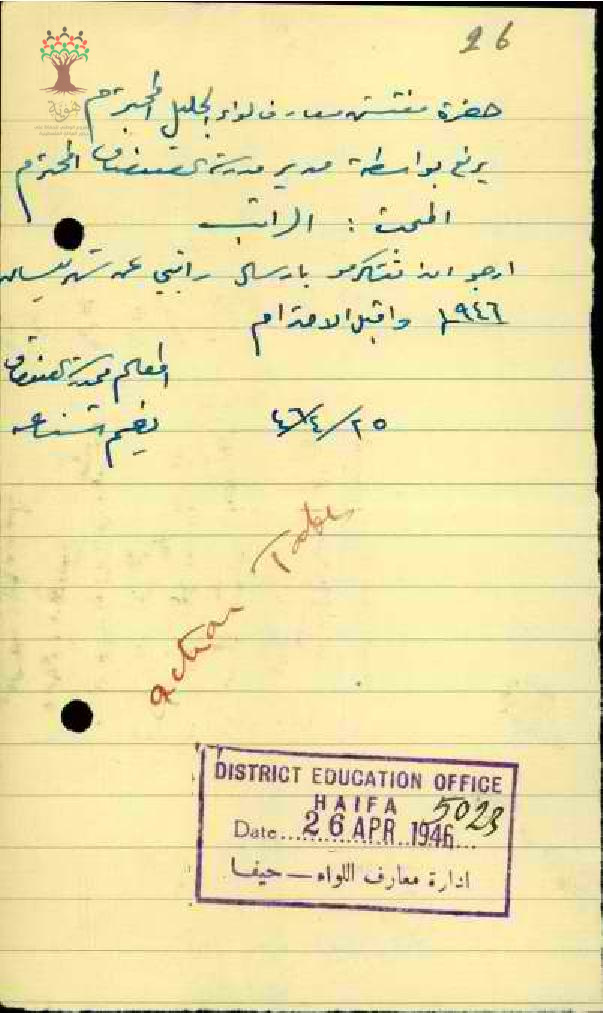 26
هوية
حضرة مفتش معارف لواء الجليل المحترم
يرفع بواسطة مدير مدرسة المحترم
المبحث : الراتب
ارجو ان تتكرمو بارسال راتبي عن شهر نيسان
١٩٤٦ واقبلو الاحترام
المعلم
٢٥/٤/٤٦
action Taken
DISTRICT EDUCATION OFFICE
HAIFA 5023
Date 26 APR 1946
ادارة معارف اللواء — حيفا